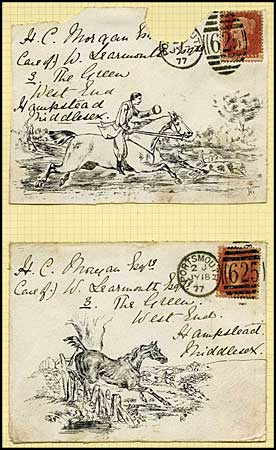 H. C. Morgan Esq
Care of W. Learmouth Esqre
3. The Green
West End
Hampstead
Middlesex.
77
625
H. C. Morgan Esqre
Care of W. Learmouth Esq
3 The Green,
West End.
Hampstead,
Middlesex.
PORTSMOUTH
2 J
JY 18
77
625